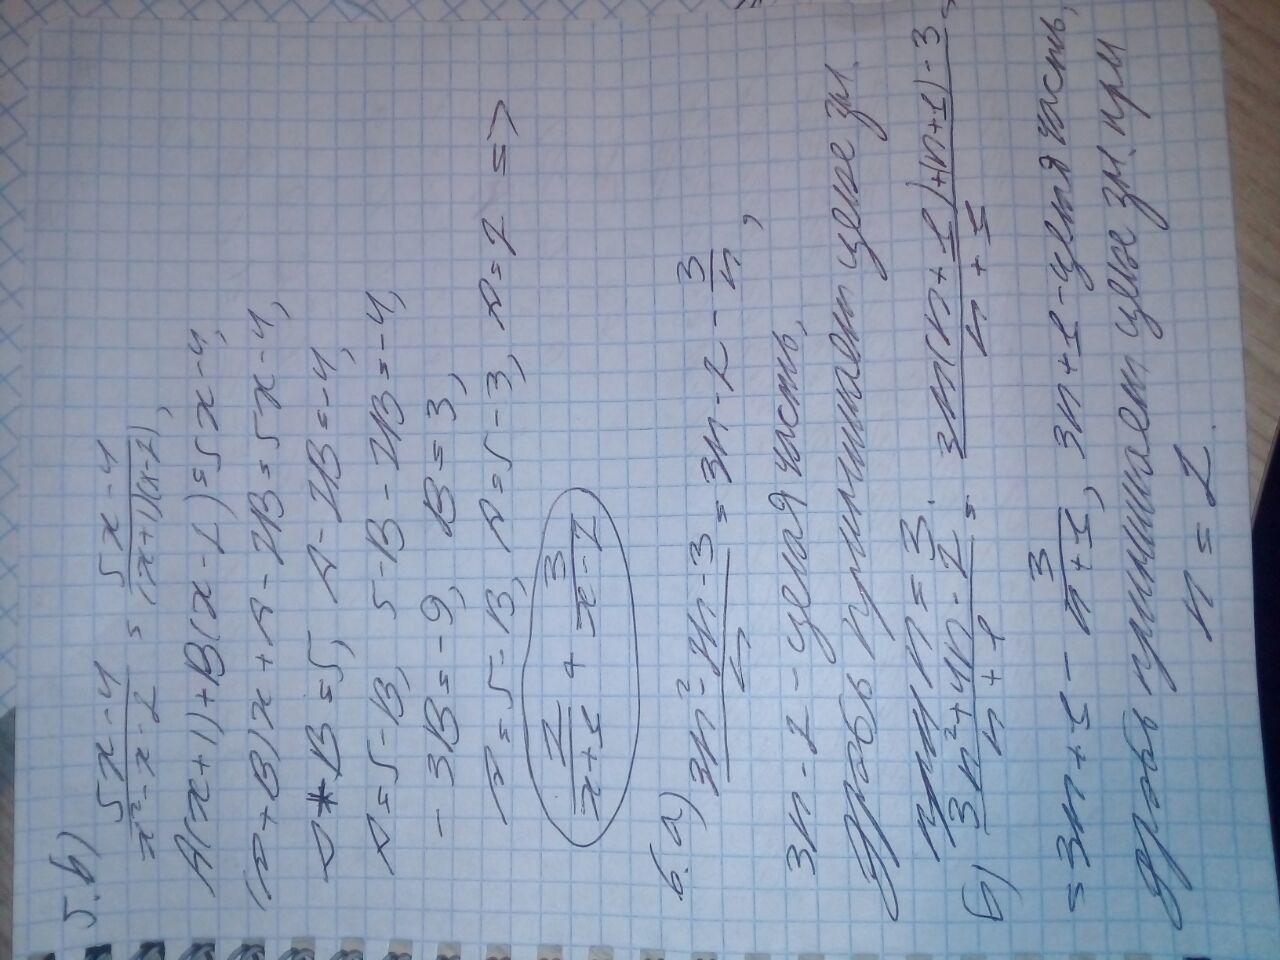 5. б) (5x-4)/(x²-x-2) = (5x-4)/((x+1)(x-2)),
A(x+1)+B(x-2)=5x-4,
(A+B)x+A-2B=5x-4,
A+B=5, A-2B=-4,
A=5-B, 5-B-2B=-4,
-3B=-9, B=3,
A=5-B, A=5-3, A=2 =>
2/(x+1) + 3/(x-2)
6. а) (3n²-2n-3)/n = 3n-2-3/n,
3n-2 - целая часть,
дробь принимает целое зн.
при n=3.
б) (3n²+4n-2)/(n+1) = (3n(n+1)+(n+1)-3)/(n+1) =
=3n+1-3/(n+1), 3n+1-целая часть,
дробь принимает целое зн. при
n=2.